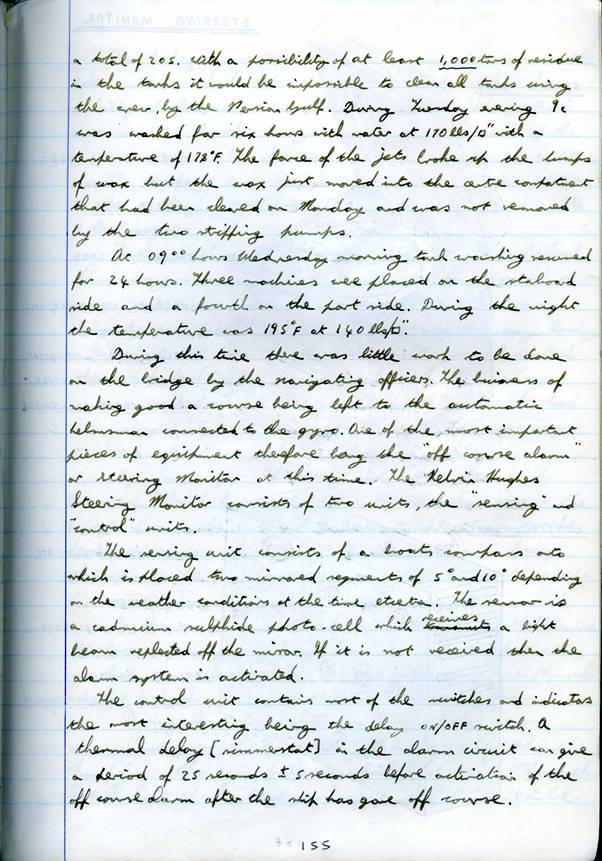 a total of 205. With a possibility of at least 1,000 tons of residue
in the tanks it would be impossible to clean all tanks using
the crew, by the Persian Gulf. During Tuesday evening 9c
was washed for six hours with water at 170 lbs/□" with a
temperature of 178°F. The force of the jets broke up the lumps
of wax but the wax just moved into the centre compartment
that had been cleaned on Monday and was not removed
by the two stripping pumps.
At 09⁰⁰ hours Wednesday morning tank washing resumed
for 24 hours. Three machines were placed on the starboard
side and a fourth on the port side. During the night
the temperature was 195°F at 140 lbs/□".
During this time there was little work to be done
on the bridge by the navigating officers. The business of
making good a course being left to the automatic
helmsman connected to the gyro. One of the most important
pieces of equipment therefore being the "off course alarm"
or Steering Monitor at this time. The Kelvin Hughes
Steering Monitor consists of two units, the "sensing" and
"control" units.
The sensing unit consists of a boats compass onto
which is placed two mirrored segments of 5° and 10° depending
on the weather conditions at the time etcetra. The sensor is
a cadmium sulphide photo-cell which receives a light
beam reflected off the mirror. If it is not received then the
alarm system is activated.
The control unit contains most of the switches and indicators
the most interesting being the delay ON/OFF switch. A
thermal delay [simmerstat] in the alarm circuit can give
a period of 25 seconds ± 5 seconds before activation of the
off course alarm after the ship has gone off course.
155